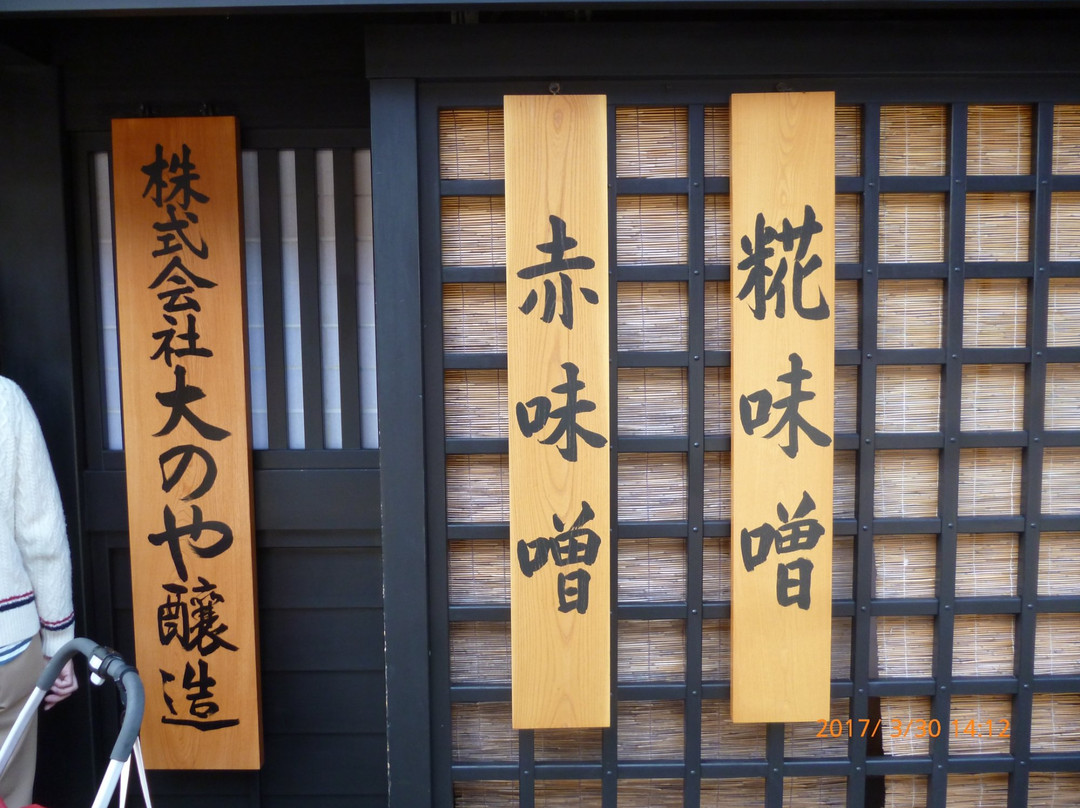 糀味噌
赤味噌
株式会社大のや醸造
2017/ 3/30 14:12